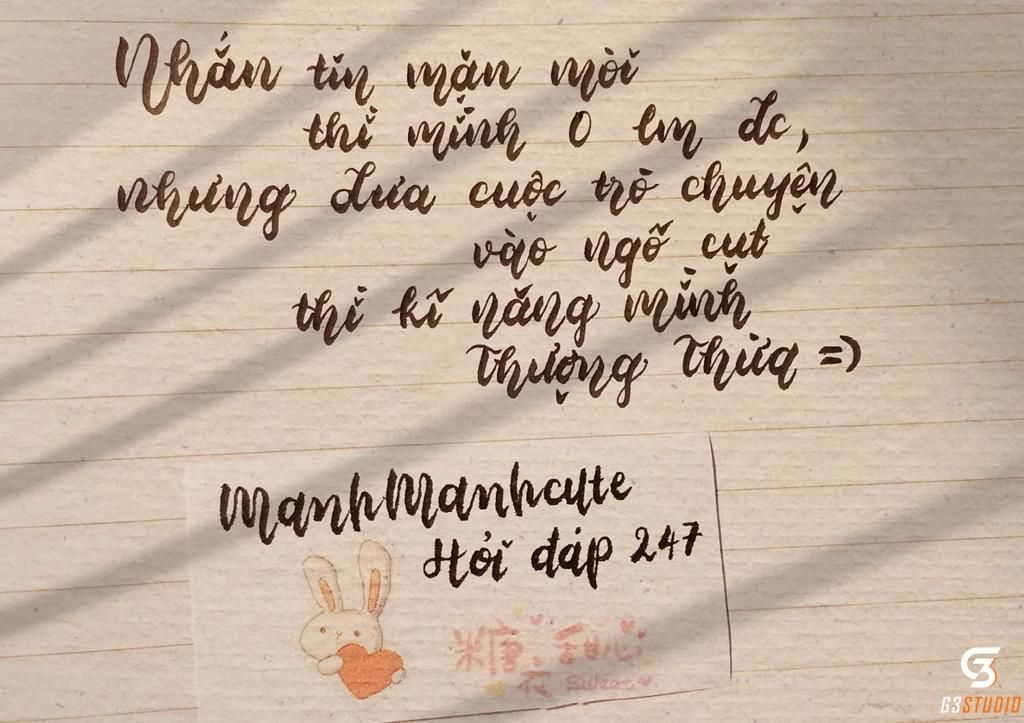 Nhắn tin mặn mòi
thì mình 0 lm đc,
nhưng đưa cuộc trò chuyện
vào ngõ cụt
thì kĩ năng mình
Thượng Thừa =)
ManhManhcute
Hỏi đáp 247
糖 甜心
Sweet
G3STUDIO